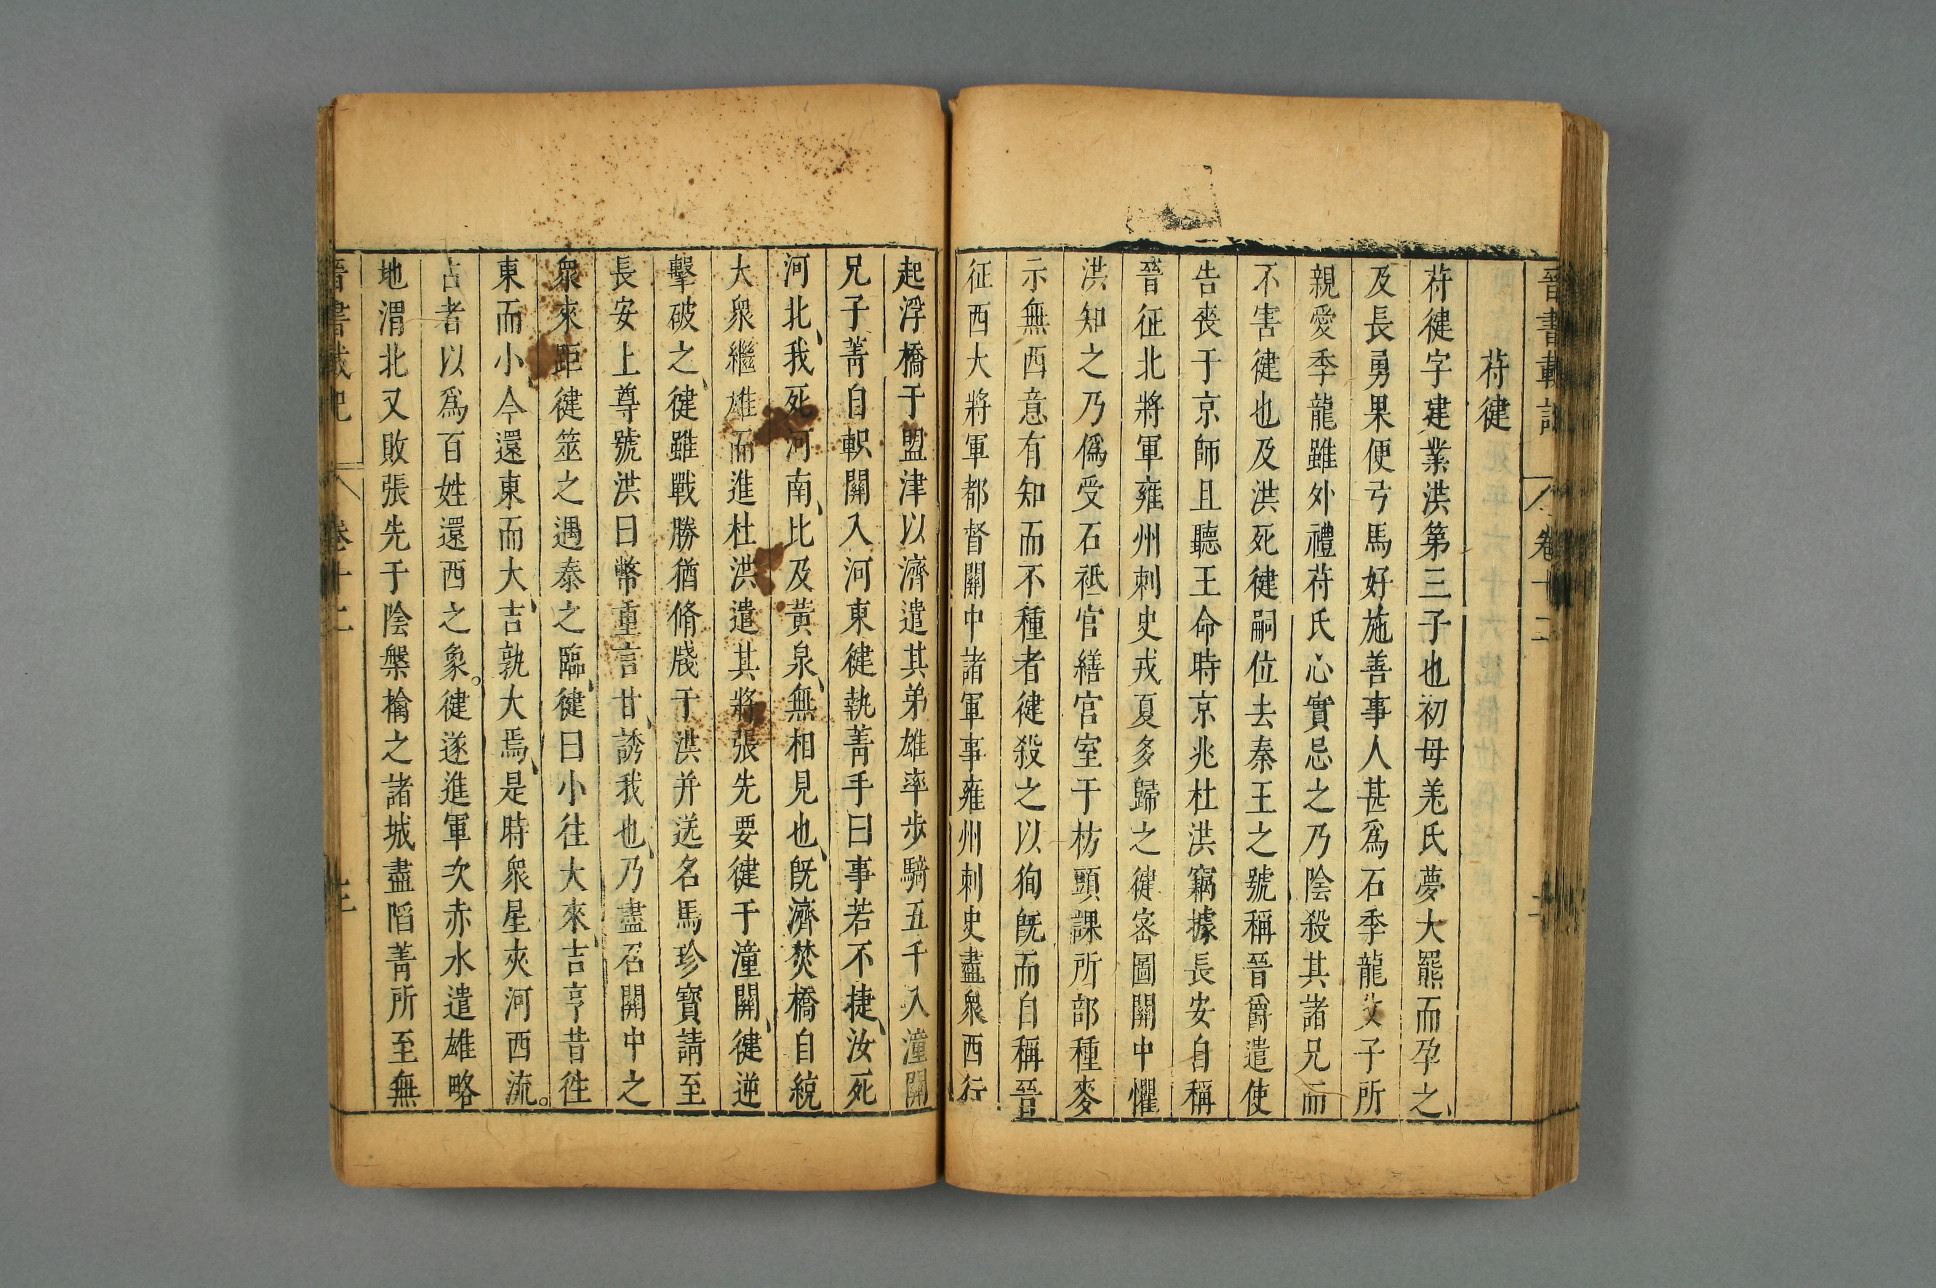 晉書載記 卷十二
苻徤
苻徤字建業洪第三子也初母羌氏夢大羆而孕之
及長勇果便弓馬好施善事人甚爲石季龍父子所
親愛季龍雖外禮苻氏心實忌之乃陰殺其諸兄而
不害徤也及洪死徤嗣位去秦王之號稱晉爵遣使
告喪于京師且聽王命時京兆杜洪竊據長安自稱
晉征北將軍雍州刺史戎夏多歸之徤密圖關中懼
洪知之乃僞受石祗官繕宮室于枋頭課所部種麥
示無西意有知而不種者徤殺之以徇旣而自稱晉
征西大將軍都督關中諸軍事雍州刺史盡衆西行
起浮橋于盟津以濟遣其弟雄率步騎五千入潼關
兄子菁自軹關入河東徤執菁手曰事若不捷、汝死
河北、我死河南、比及黃泉、無相見也、旣濟焚橋自統
大衆繼雄而進杜洪遣其將張先要徤于潼關、徤逆
擊破之、徤雖戰勝猶脩牋于洪并送名馬珍寶請至
長安上尊號洪曰幣重言甘、誘我也、乃盡召關中之
衆來距徤筮之遇泰之臨、徤曰小往大來、吉亨昔往
東而小今還東而大、吉孰大焉、是時衆星夾河西流。
占者以爲百姓還西之象。徤遂進軍次赤水遣雄略
地渭北又敗張先于陰槃擒之諸城盡陷菁所至無
晉書載記 卷十二